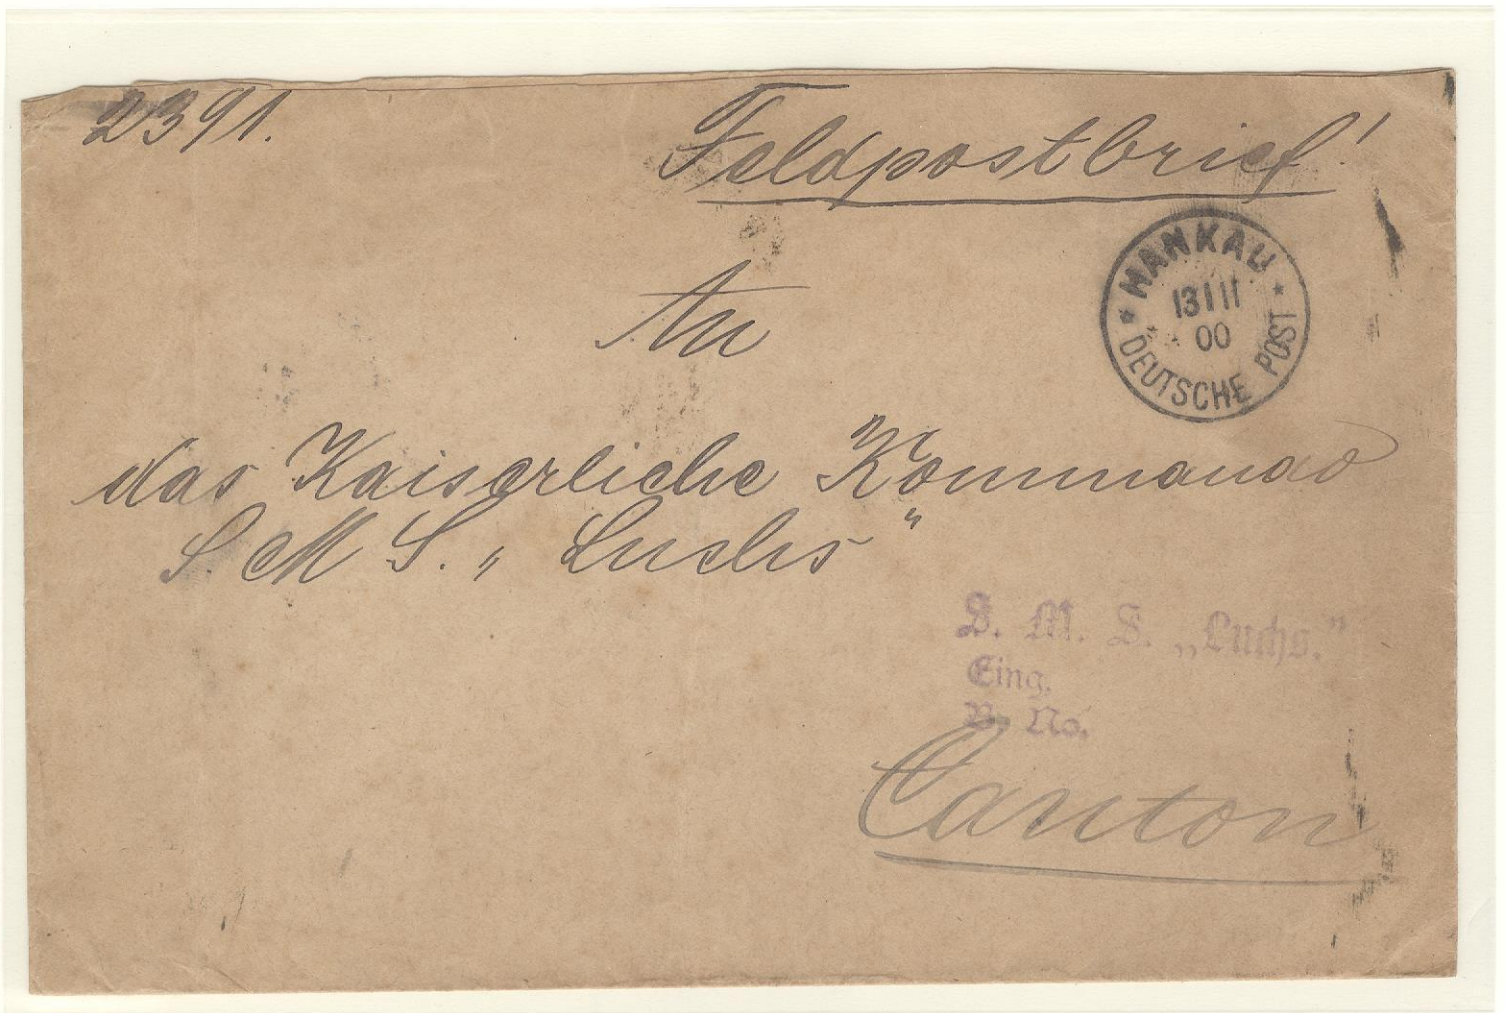 2391.
Feldpostbrief!
HANKAU
13 11
00
DEUTSCHE POST
An
das Kaiserliche Kommando
S. M. S. „Luchs"
S. M. S. „Luchs."
Eing.
B. No.
Canton